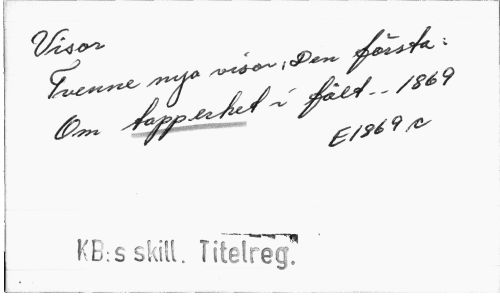 Visor
Tvenne nya visor, Den första:
Om tapperhet i fält.. 1869
E1869 c
KB:s skill. Titelreg.